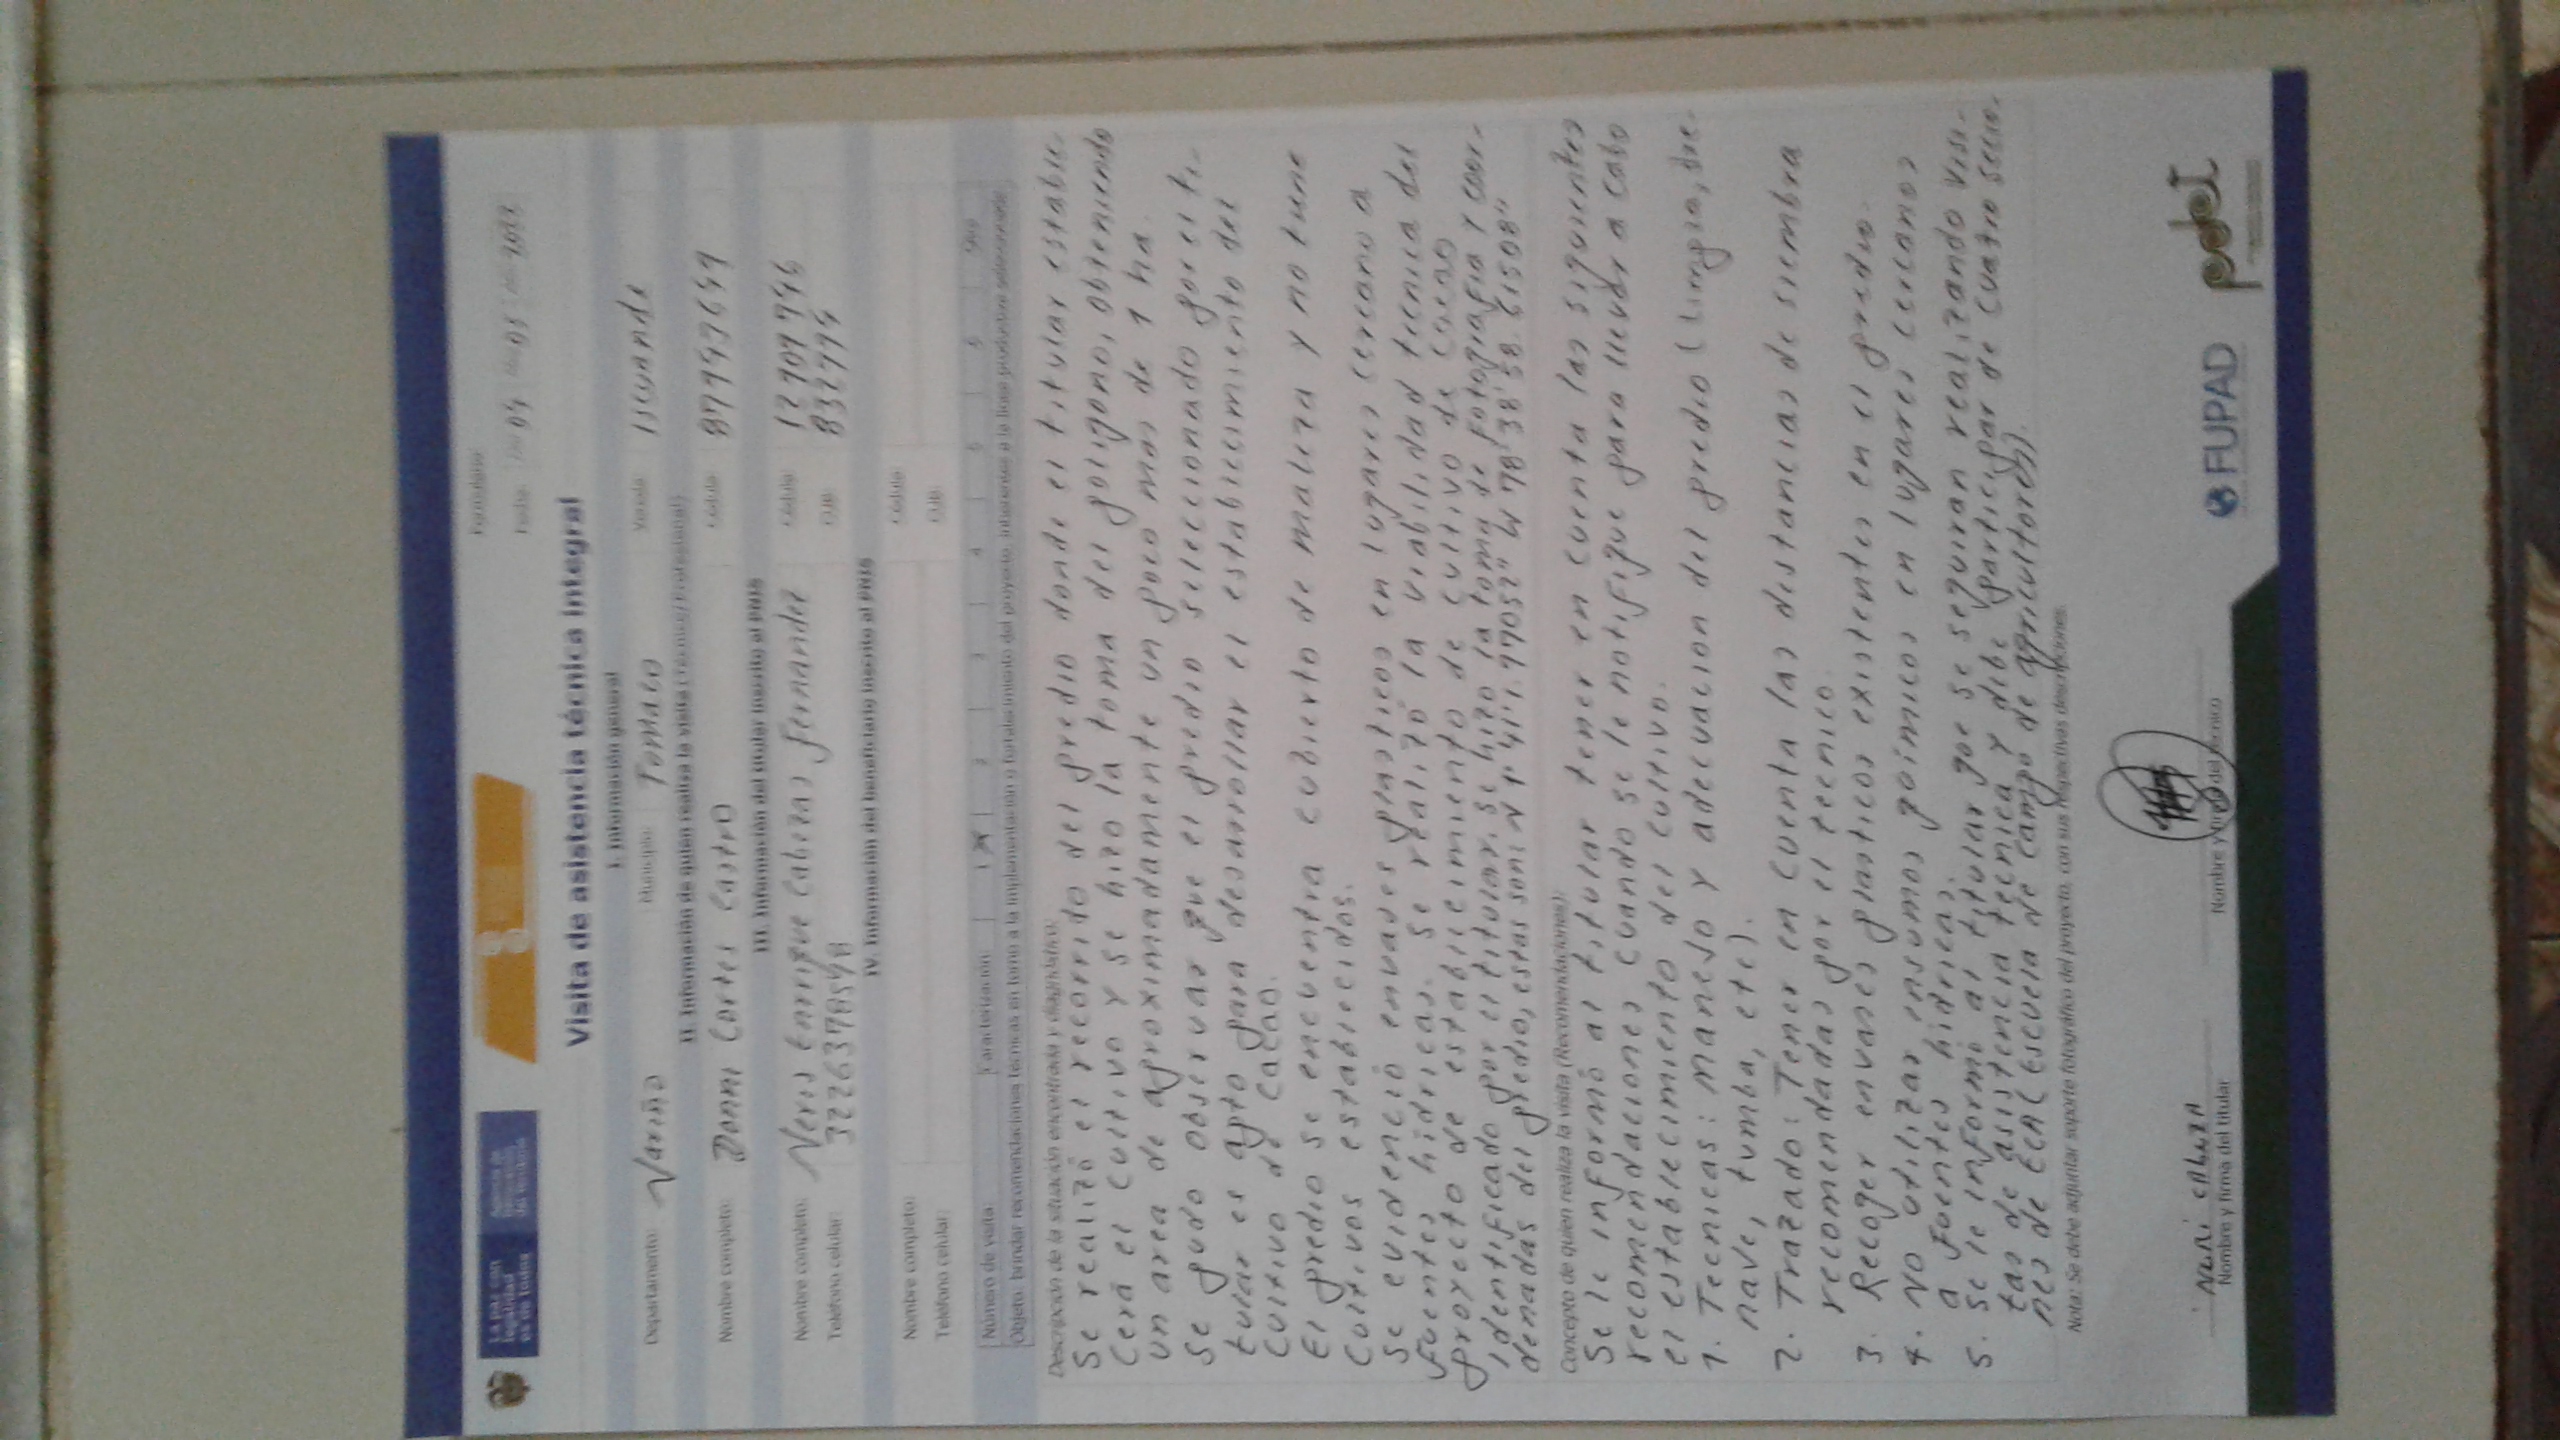 La paz con
legalidad
es de todos
Formulario:
Fecha:
Visita de asistencia técnica integral
I. Información general
Departamento: Nariño Municipio: Tumaco Vereda: Iscuande
II. Información de quien realiza la visita (Técnico/Profesional)
Nombre completo: Danni Cortes Castro Cédula:
III. Información del titular inscrito al PNIS
Nombre completo: Neris Enrrique Cabezas Fernandez Cédula:
Teléfono celular: 3226378548 CUB:
IV. Información del beneficiario inscrito al PNIS
Nombre completo: Cédula:
Teléfono celular: CUB:
Número de visita: Caracterización 1 X 2 3 4 5 6
Objeto: brindar recomendaciones técnicas en torno a la implementación o fortalecimiento del proyecto, inherentes a la línea productiva seleccionada
Descripción de la situación encontrada y diagnóstico:
Se realizó el recorrido del predio donde el titular estable-
cerá el cultivo y se hizo la toma del poligono, obteniendo
un area de aproximadamente un poco mas de 1 ha.
Se pudo observar que el predio seleccionado por el ti-
tular es apto para desarrollar el establecimiento del
cultivo de cacao.
El predio se encuentra cubierto de maleza y no tiene
cultivos establecidos.
Se evidenció envases plasticos en lugares cercano a
fuentes hidricas. Se realizó la viabilidad tecnica del
proyecto de establecimiento de cultivo de cacao
identificado por el titular, se hizo la toma de fotografia y coor-
denadas del predio, estas son: N 1°41'1.77052" W 78°38'58.61508"
Concepto de quien realiza la visita (Recomendaciones):
Se le informó al titular tener en cuenta las siguientes
recomendaciones cuando se le notifique para llevar a cabo
el establecimiento del cultivo.
1. Tecnicas: manejo y adecuacion del predio (limpia, dre-
nave, tumba, etc).
2. Trazado: Tener en cuenta las destancias de siembra
recomendadas por el tecnico.
3. Recoger envases plasticos existentes en el predio.
4. No utilizar insumos quimicos en lugares cercanos
a fuentes hidricas.
5. Se le informó al titular que se seguiran realizando visi-
tas de asistencia tecnica y debe participar de cuatro secio-
nes de ECA (Escuela de campo de agricultores).
Nota: Se debe adjuntar soporte fotográfico del proyecto, con sus respectivas descripciones.
Nombre y firma del titular Nombre y firma del técnico
FUPAD
pdet